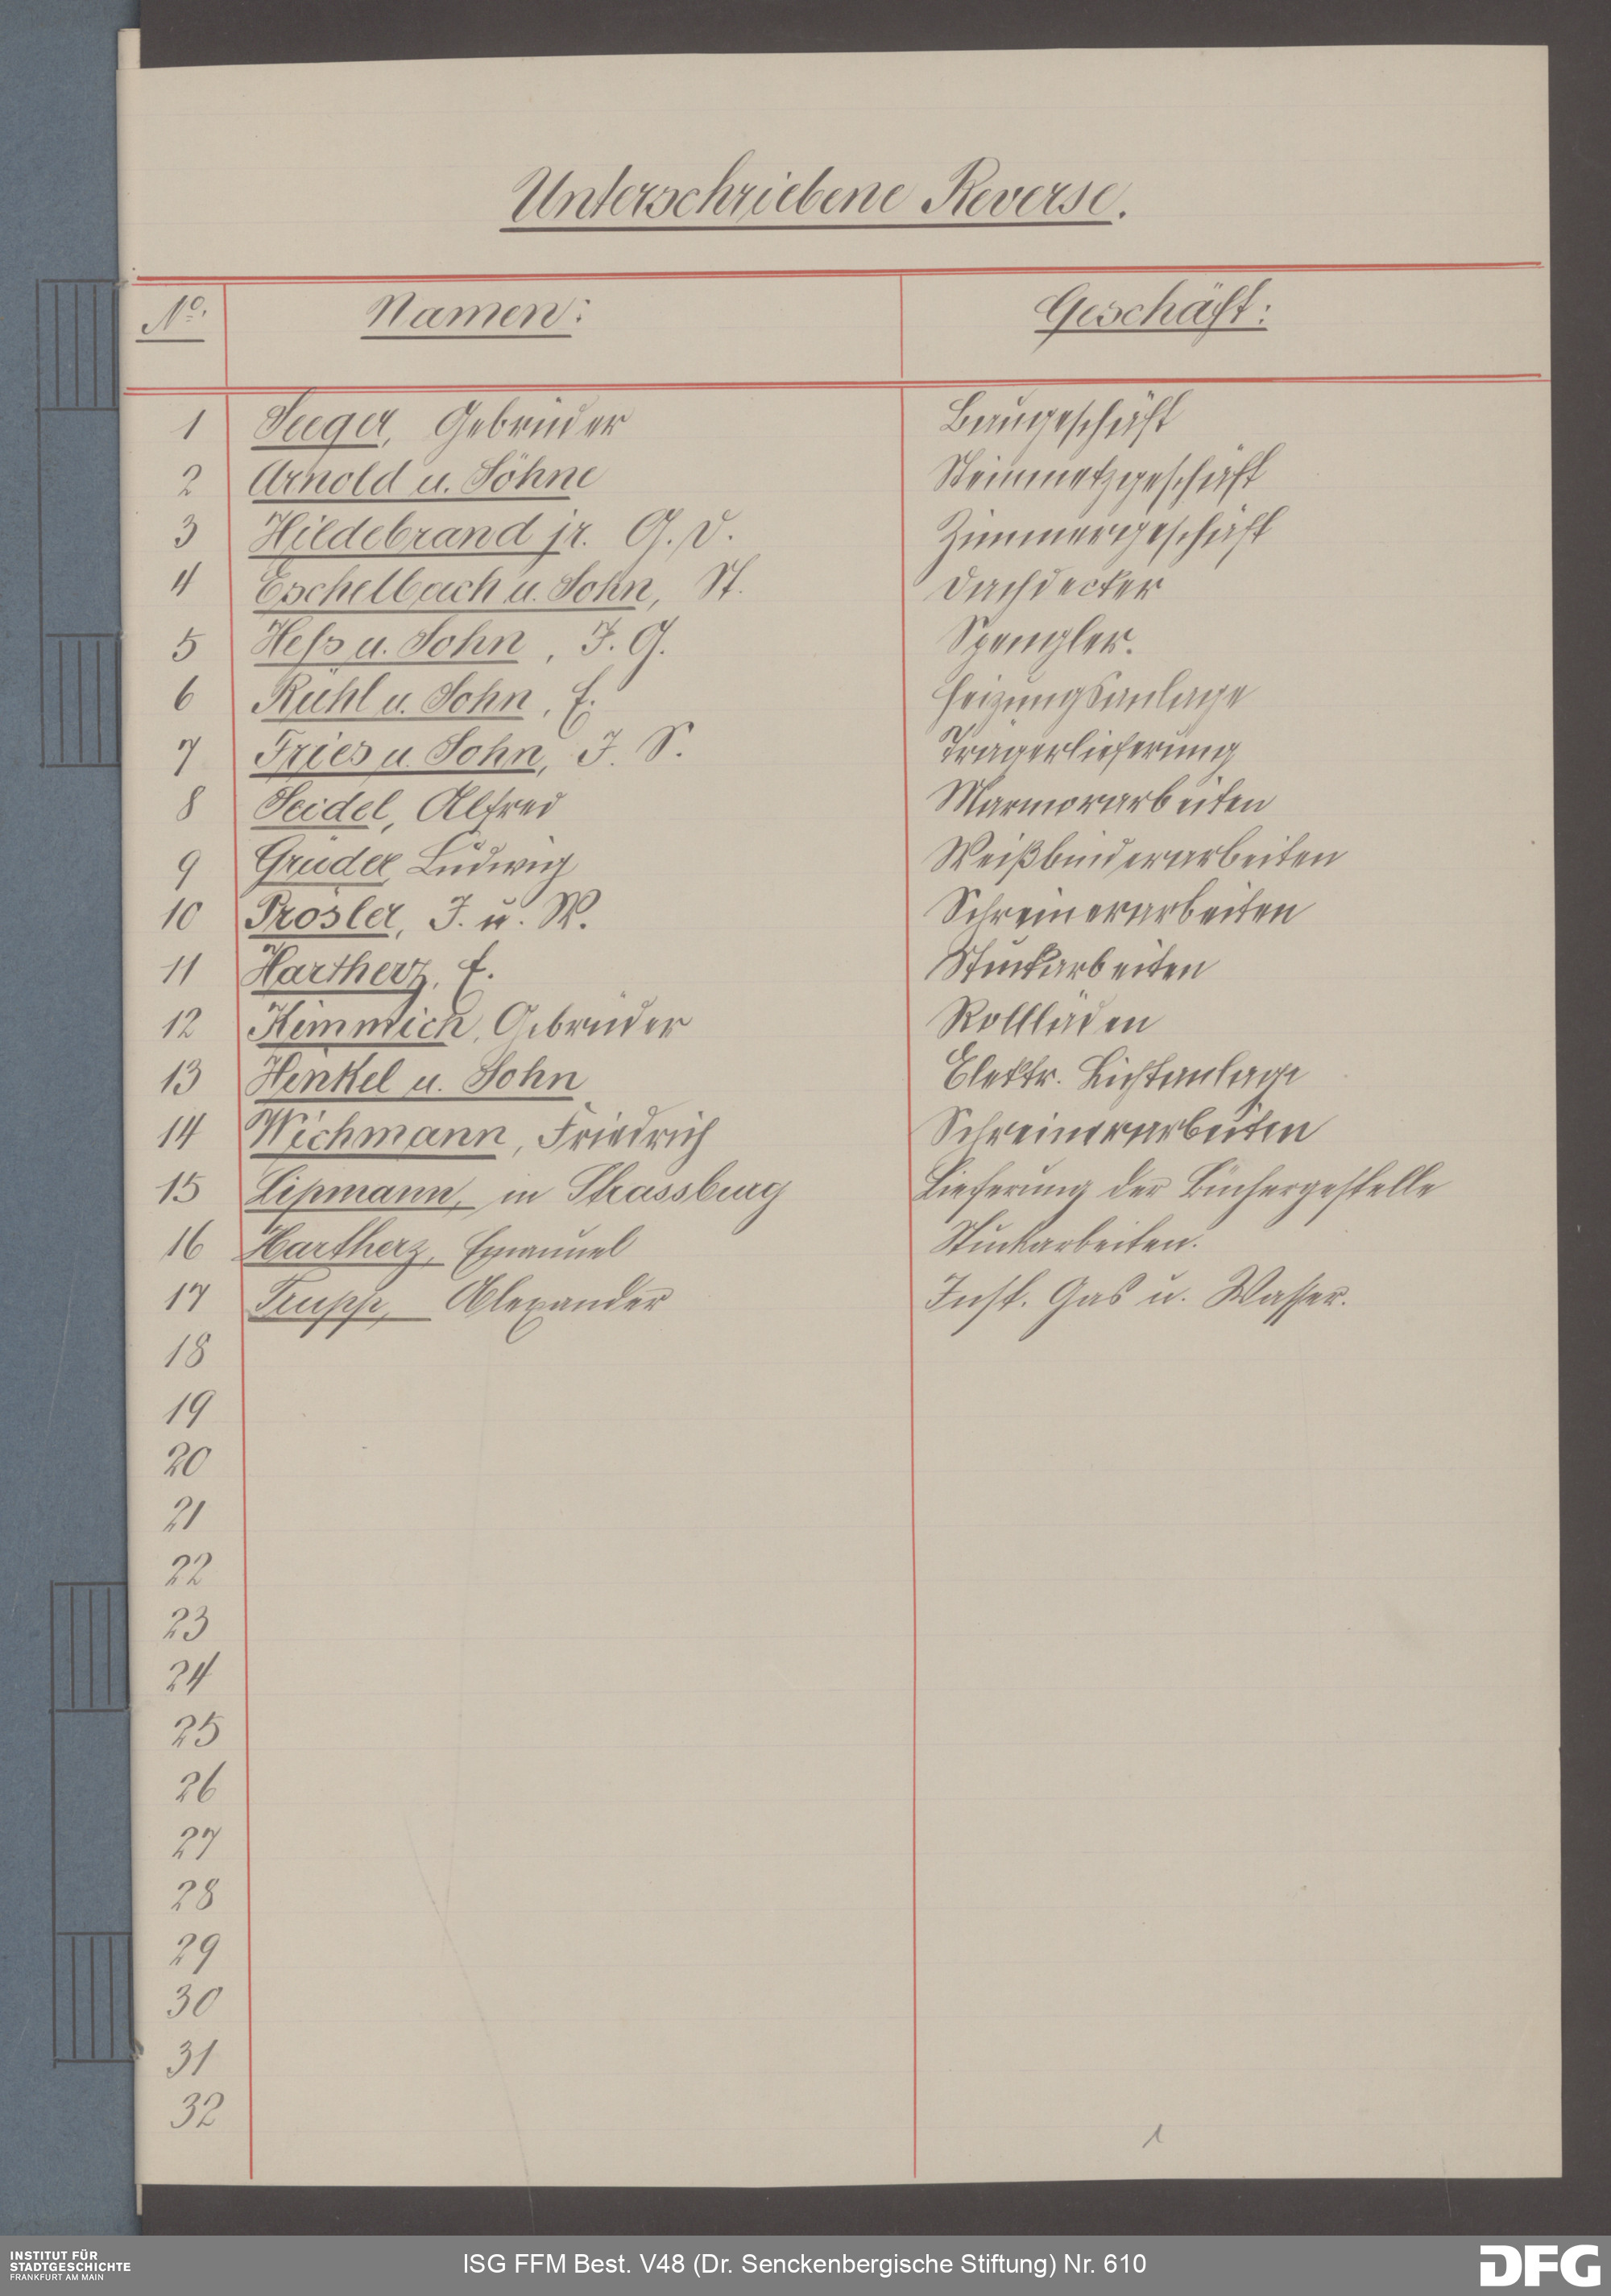 Unterschriebene Reverse.
No. Namen: Geschäft:
1 Seeger, Gebrüder Baugeschäft
2 Arnold u. Söhne Steinmetzgeschäft
3 Hildebrand jr. G. V. Zimmergeschäft
4 Eschelbach u. Sohn, St. Dachdecker
5 Heß u. Sohn, J. G. Spengler.
6 Rühl u. Sohn, E. Heizungsanlage
7 Fries u. Sohn, J. S. Trägerlieferung
8 Seidel, Alfred Marmorarbeiten
9 Grüder, Ludwig Weißbinderarbeiten
10 Prösler, J. u. W. Schreinerarbeiten
11 Hartherz, E. Stuckarbeiten
12 Kimmich, Gebrüder Rollläden
13 Henkel u. Sohn Elektr. Lichtanlage
14 Wichmann, Friedrich Schreinerarbeiten
15 Lipmann, in Strassburg Lieferung der Büchergestelle
16 Hartherz, Emanuel Stuckarbeiten.
17 Trupp, Alexander Inst. Gas u. Wasser.
18
19
20
21
22
23
24
25
26
27
28
29
30
31
32
1
INSTITUT FÜR
STADTGESCHICHTE
FRANKFURT AM MAIN
ISG FFM Best. V48 (Dr. Senckenbergische Stiftung) Nr. 610
DFG